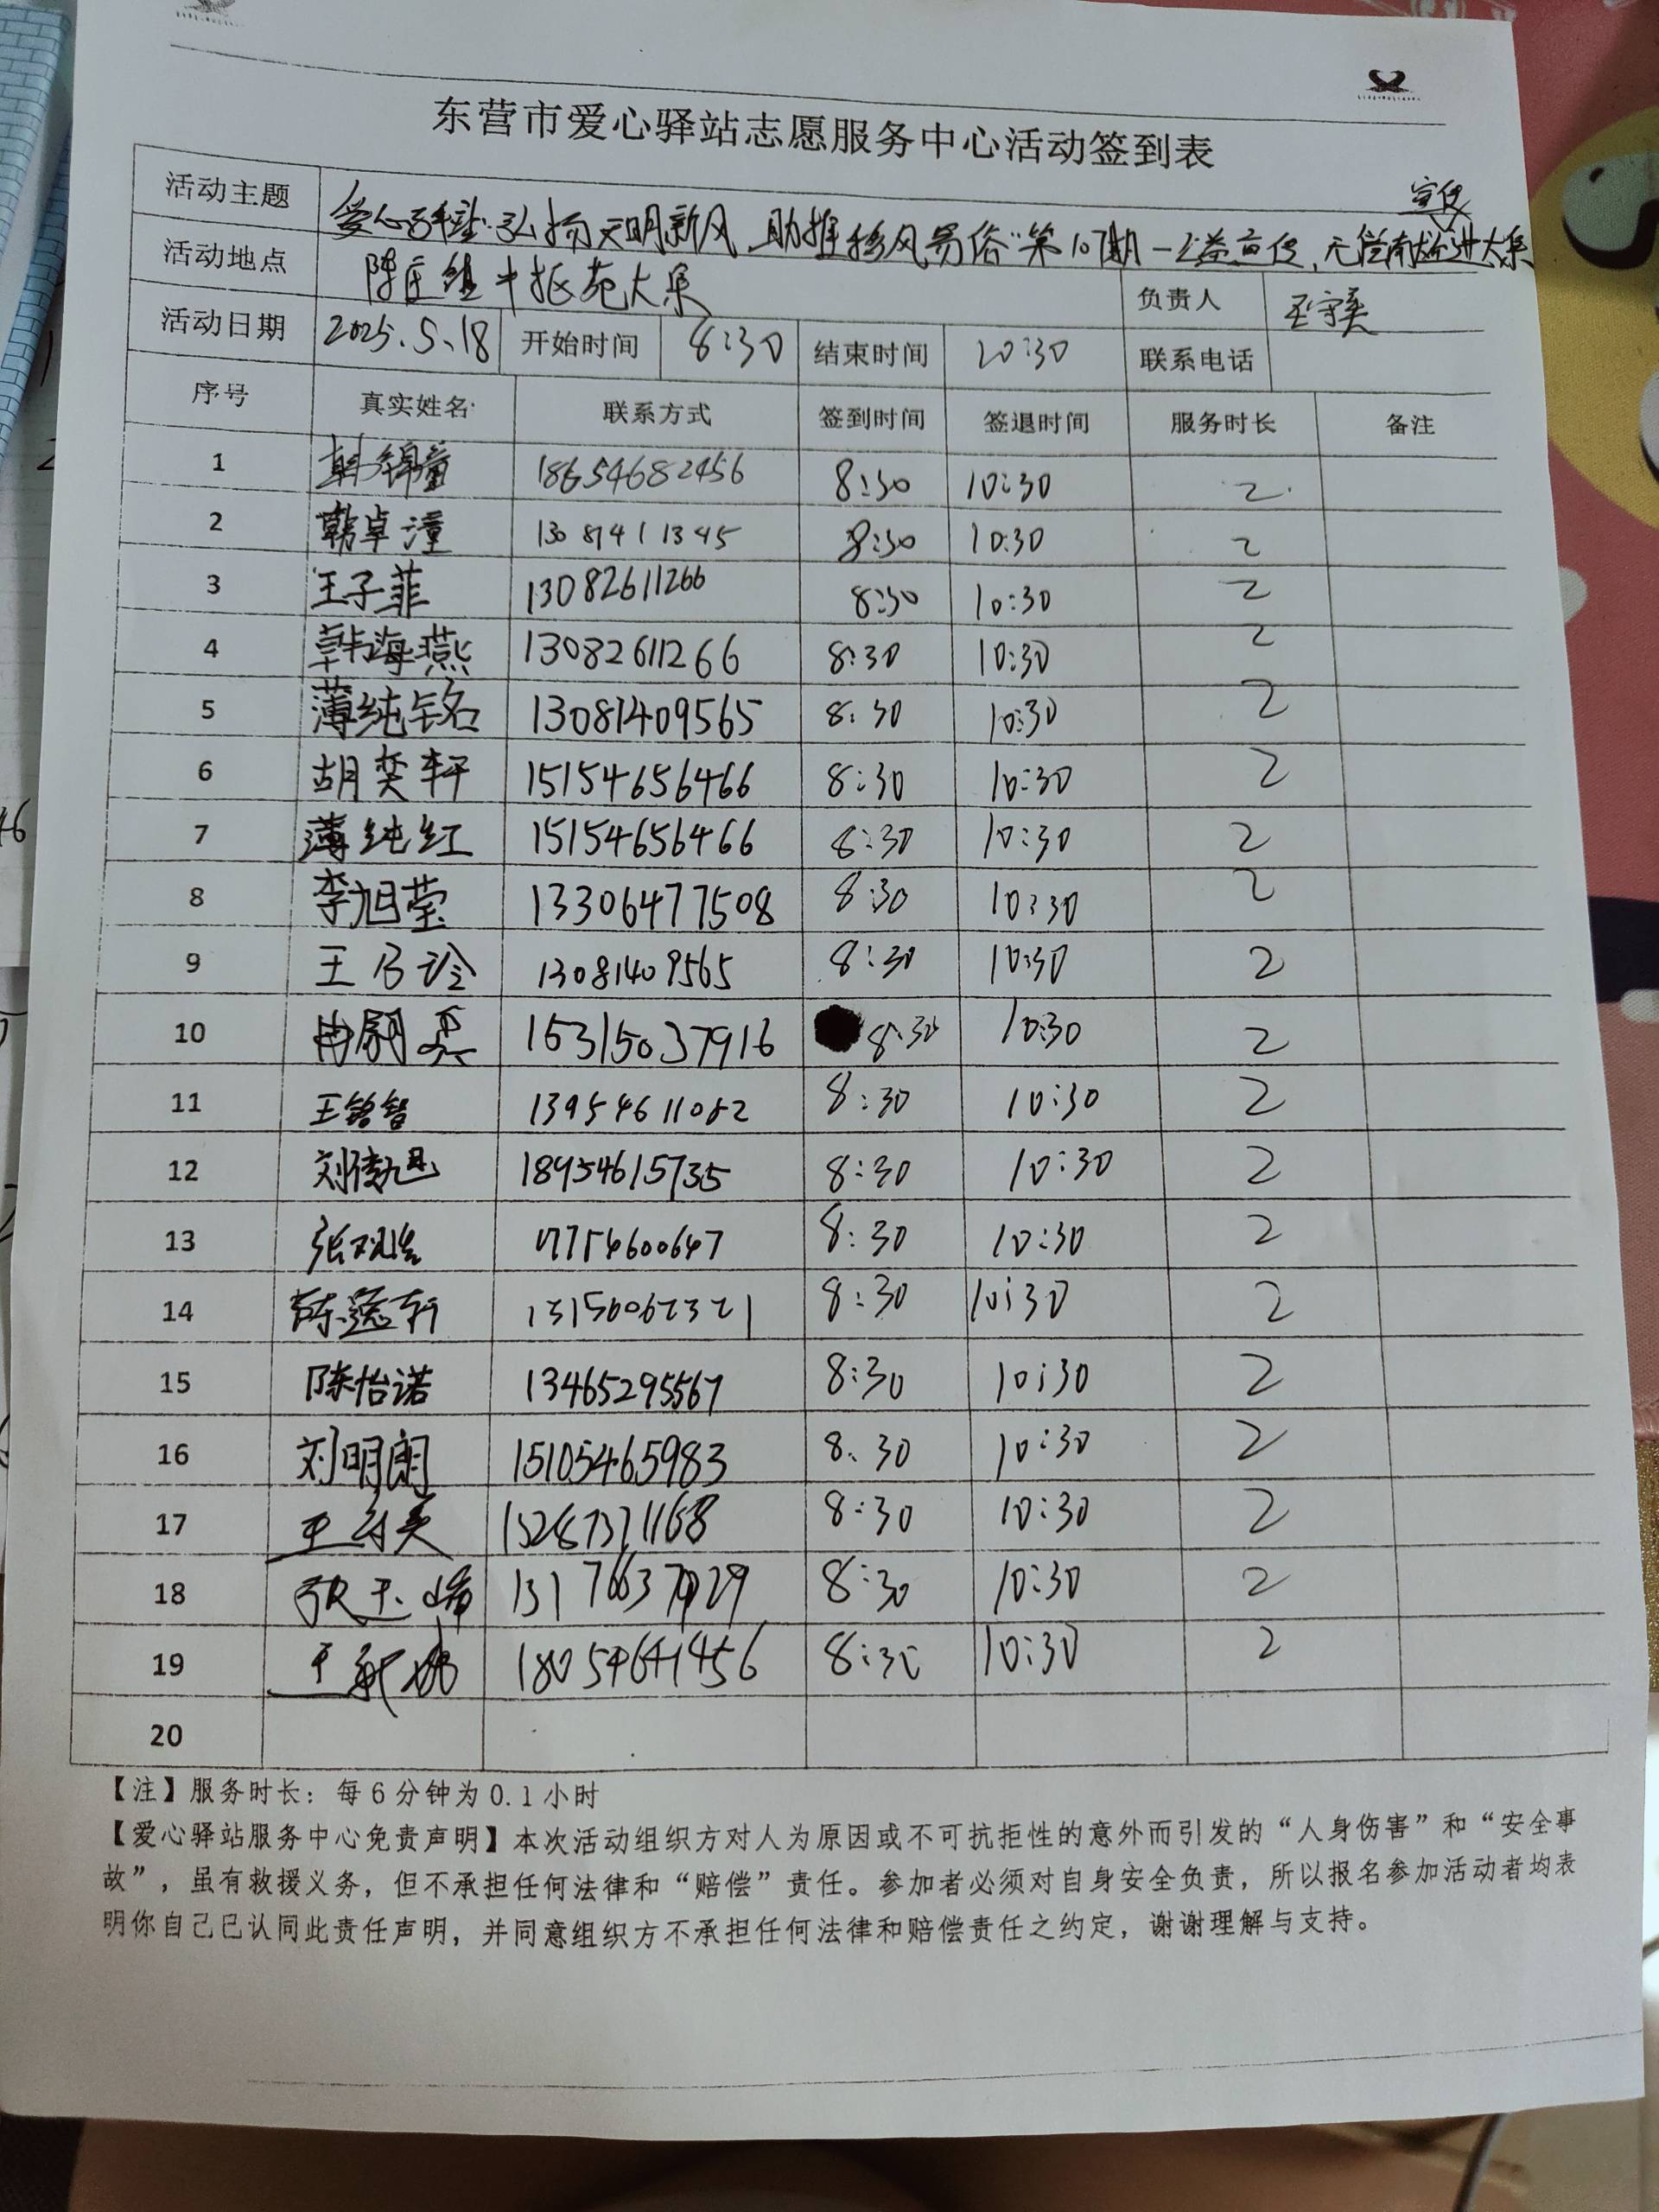 东营市爱心驿站志愿服务中心活动签到表
活动主题 爱心驿站·弘扬文明新风 助推移风易俗"第107期—公益宣传、无偿献血进大集
宣传
活动地点 陈庄镇中 苑大集 负责人 王守美
活动日期 2025.5.18 开始时间 8:30 结束时间 10:30 联系电话
序号 真实姓名 联系方式 签到时间 签退时间 服务时长 备注
1 韩锦童 18654682456 8:30 10:30 2
2 韩卓潼 8:30 10:30 2
3 王子菲 13082611266 8:30 10:30 2
4 韩海燕 13082611266 8:30 10:30 2
5 薄纯铭 13081409565 8:30 10:30 2
6 胡奕轩 15154656466 8:30 10:30 2
7 薄纯红 15154656466 8:30 10:30 2
8 李旭莹 13306477508 8:30 10:30 2
9 王乃 13081409565 8:30 10:30 2
10 15315037916 8:30 10:30 2
11 王铭智 13954611082 8:30 10:30 2
12 18954615735 8:30 10:30 2
13 17754600647 8:30 10:30 2
14 陈逸轩 13156062321 8:30 10:30 2
15 陈怡诺 13465295567 8:30 10:30 2
16 刘明朗 15105465983 8:30 10:30 2
17 王守美 15267371168 8:30 10:30 2
18 8:30 10:30 2
19 18054641456 8:30 10:30 2
20
【注】服务时长：每6分钟为0.1小时
【爱心驿站服务中心免责声明】本次活动组织方对人为原因或不可抗拒性的意外而引发的“人身伤害”和“安全事
故”，虽有救援义务，但不承担任何法律和“赔偿”责任。参加者必须对自身安全负责，所以报名参加活动者均表
明你自己已认同此责任声明，并同意组织方不承担任何法律和赔偿责任之约定，谢谢理解与支持。